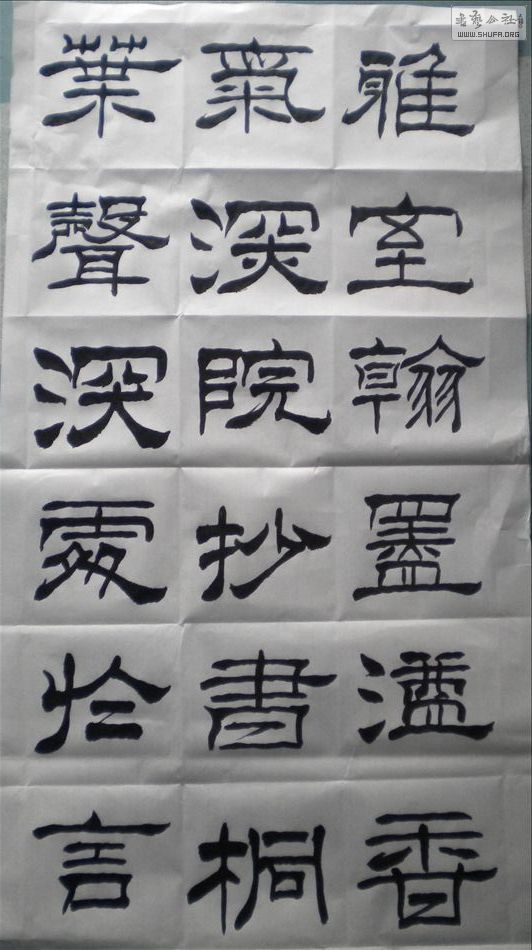 書藝公社
WWW.SHUFA.ORG
雅室翰墨溢香
氣深院抄書桐
葉聲深處於言